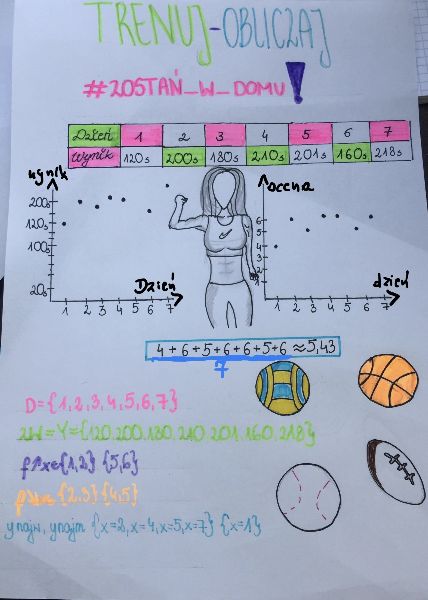 TRENUJ-OBLICZAJ
#ZOSTAŃ_W_DOMU!
Dzień 1 2 3 4 5 6 7
Wynik 120s 200s 180s 210s 201s 160s 218s
wynik
200s
120s
100s
20s
1 2 3 4 5 6 7
Dzień
ocena
6
5
4
3
2
1
1 2 3 4 5 6 7
dzień
4+6+5+6+6+5+6 ≈ 5,43
7
D={1,2,3,4,5,6,7}
ZW=Y={120,200,180,210,201,160,218}
f↗xe{1,2} {5,6}
{2,3} {4,5}
ynajw, ynajm {x=2,x=4,x=5,x=7} {x=1}